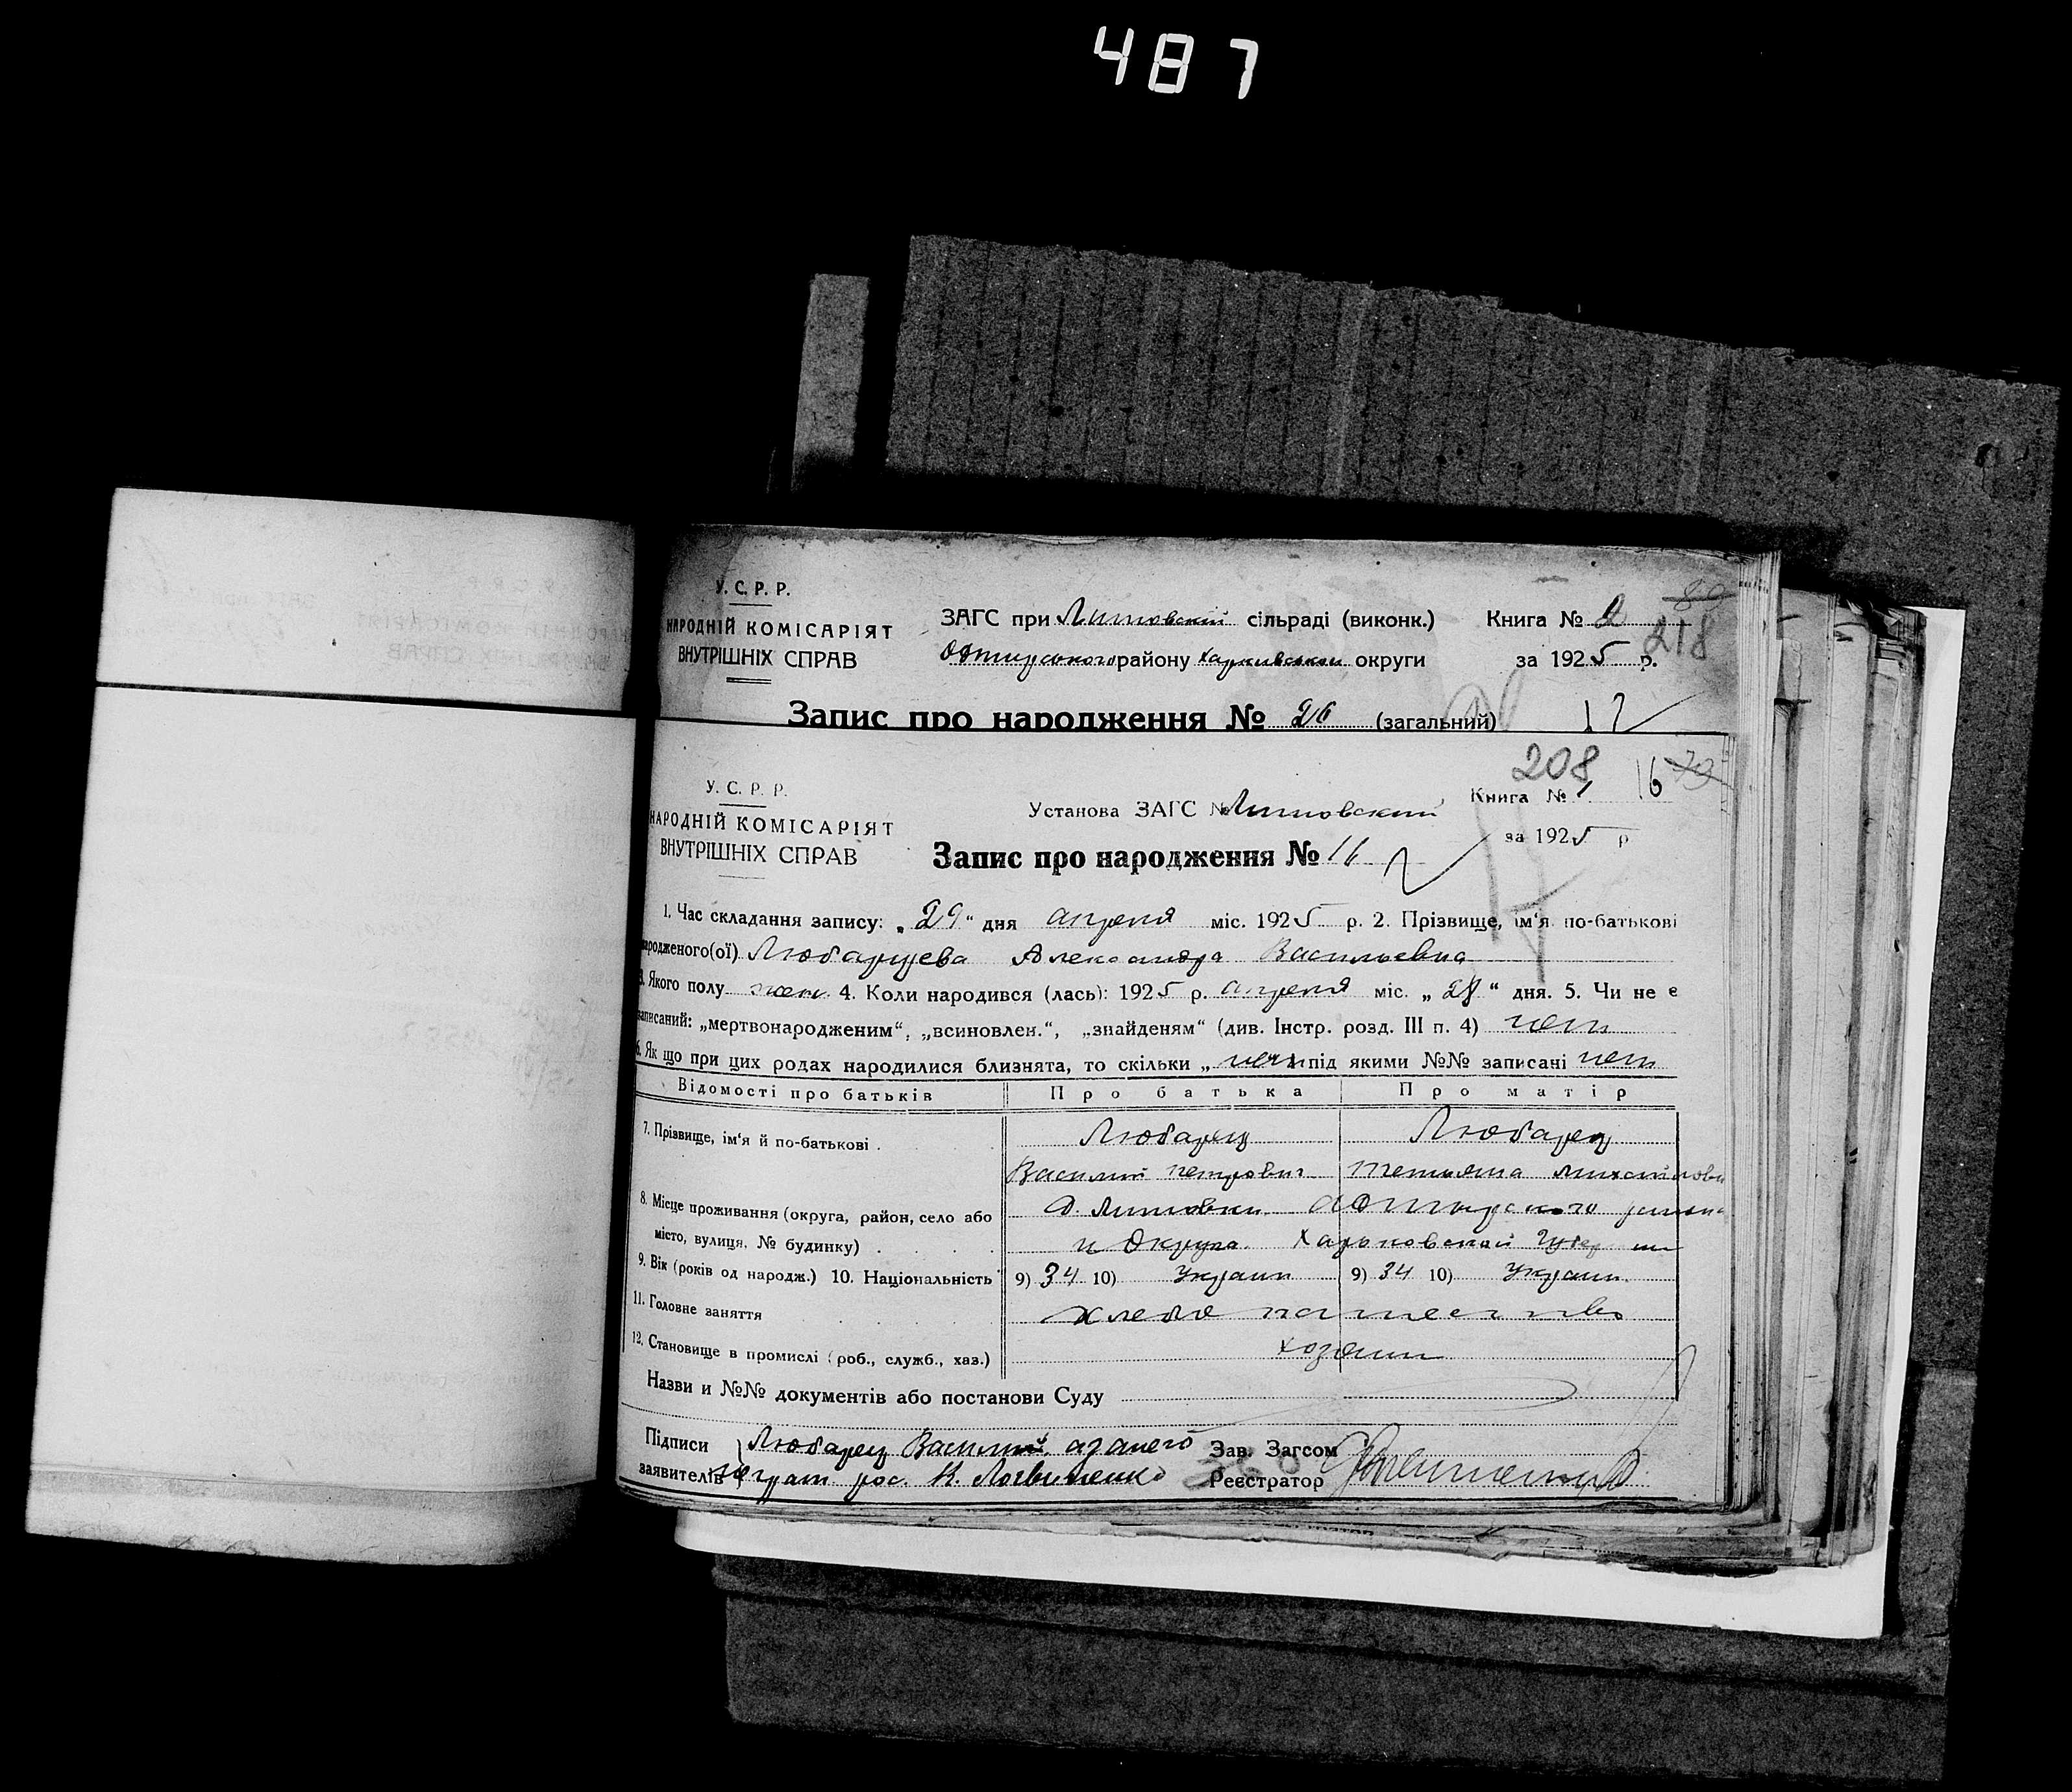 487
У. С. Р. Р.
НАРОДНІЙ КОМІСАРІЯТ
ВНУТРІШНІХ СПРАВ
ЗАГС при сільраді (виконк.)
району округи
Книга № 2
80
218
за 1925 р.
Запис про народження № 26 (загальний)
12
208
16 70
У. С. Р. Р.
НАРОДНІЙ КОМІСАРІЯТ
ВНУТРІШНІХ СПРАВ
Установа ЗАГС №
Книга № 1
за 1925 р
Запис про народження № 16
1. Час складання запису: „29“ дня апреля міс. 1925 р. 2. Прізвище, ім'я по-батькові
народженого(ої) Любарцева Александра Васильевна
3. Якого полу жен. 4. Коли народився (лась): 1925 р. апреля міс. „28“ дня. 5. Чи не є
записаний: „мертвонародженим“, „всиновлен.“, „знайденям“ (див. Інстр. розд. III п. 4) нет
6. Як що при цих родах народилися близнята, то скільки „ нет під якими №№ записані нет
Відомості про батьків Про батька Про матір
7. Прізвище, ім'я й по-батькові . Любарец Любарец
Василий петрович Татьяна михайловн
8. Місце проживання (округа, район, село або
місто, вулиця, № будинку) . и Округа Харьковской
9. Вік (років од народж.) 10. Національність 9) 34 10) Украин 9) 34 10) Украин.
11. Головне заняття хлебо пашество
12. Становище в промислі (роб., служб., хаз.) хозяин
Назви и №№ документів або постанови Суду
Підписи
заявителів
Любарец Василий а за него
неграм. рос. К. Логвиненко
Зав. Загсом
Реєстратор